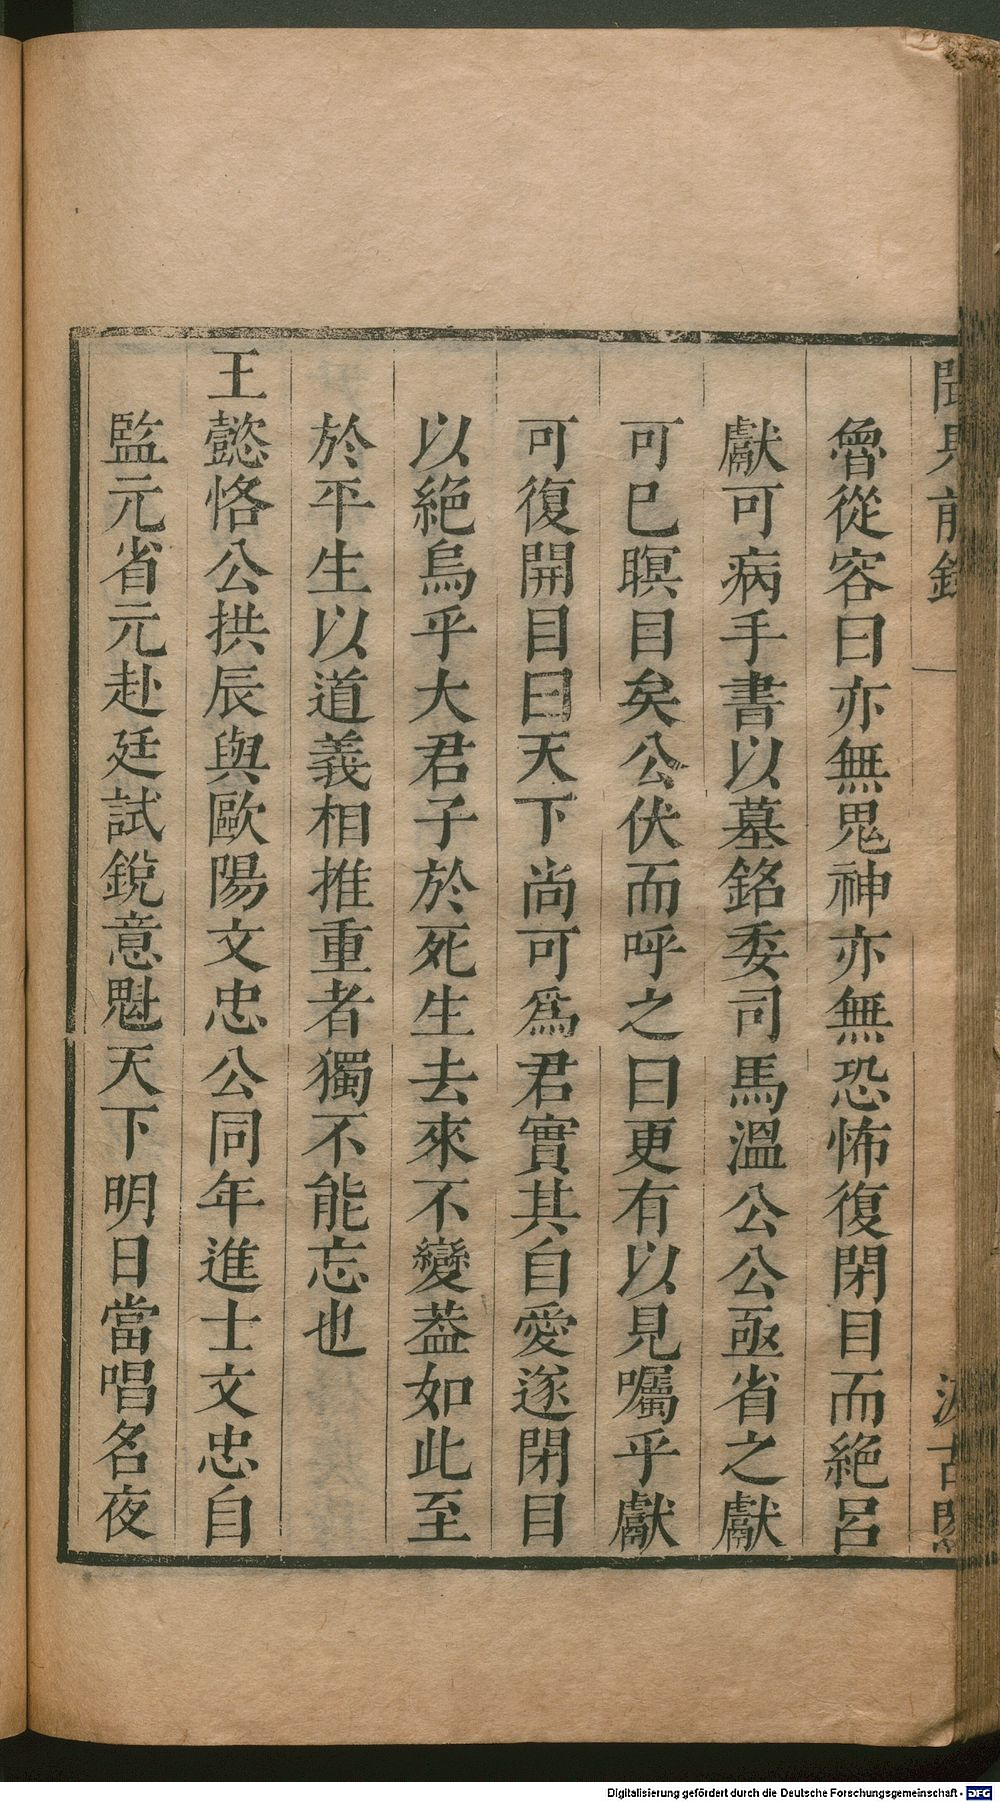 聞見前錄
汲古閣
魯從容曰亦無鬼神亦無恐怖復閉目而絕呂
獻可病手書以墓銘委司馬溫公公亟省之獻
可已瞑目矣公伏而呼之曰更有以見囑乎獻
可復開目曰天下尚可爲君實其自愛遂閉目
以絕烏乎大君子於死生去來不變葢如此至
於平生以道義相推重者獨不能忘也
王懿恪公拱辰與歐陽文忠公同年進士文忠自
監元省元赴廷試銳意魁天下明日當唱名夜
Digitalisierung gefördert durch die Deutsche Forschungsgemeinschaft - DFG